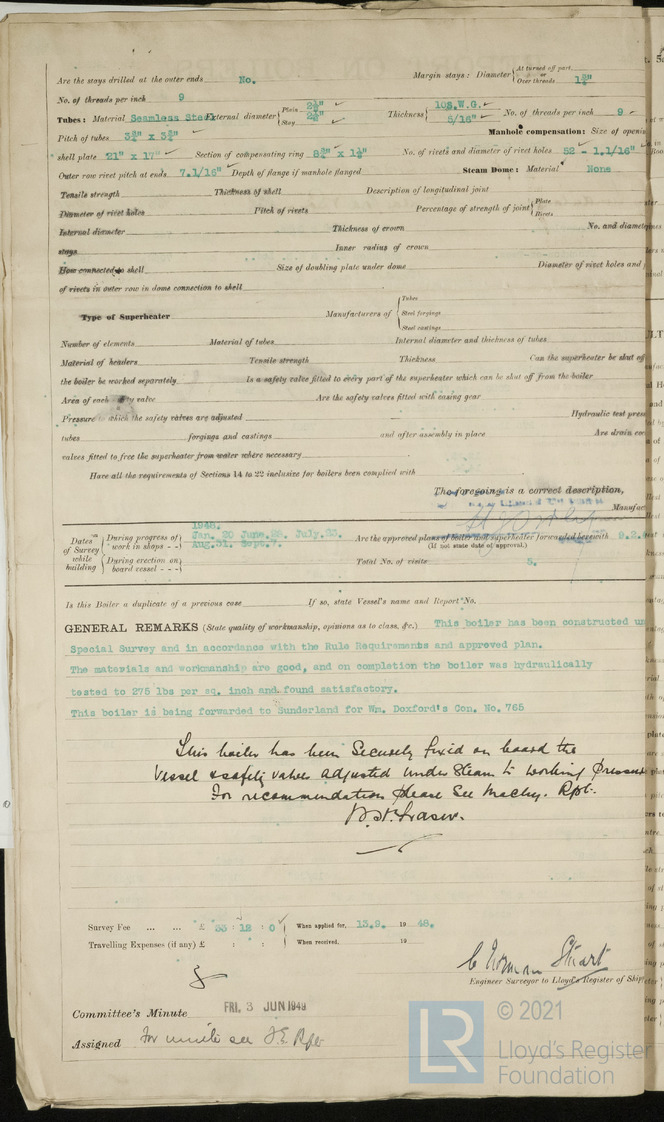 Are the stays drilled at the outer ends No. Margin stays: Diameter { At turned off part, or Over threads 1⅝"
No. of threads per inch 9
Tubes: Material Seamless Steel External diameter { Plain 2½" Stay 2½" Thickness { 10S.W.G. 5/16" No. of threads per inch 9
Pitch of tubes 3¾" x 3¾" Manhole compensation: Size of openin
shell plate 21" x 17" Section of compensating ring No. of rivets and diameter of rivet holes 52 - 1.1/16"
Outer row rivet pitch at ends 7.1/16" Depth of flange if manhole flanged Steam Dome: Material None
Tensile strength Thickness of shell Description of longitudinal joint
Diameter of rivet holes Pitch of rivets Percentage of strength of joint { Plate Rivets
Internal diameter Thickness of crown No. and diamete
stays Inner radius of crown
How connected to shell Size of doubling plate under dome Diameter of rivet holes and
of rivets in outer row in dome connection to shell
Type of Superheater Manufacturers of { Tubes Steel forgings Steel castings
Number of elements Material of tubes Internal diameter and thickness of tubes
Material of headers Tensile strength Thickness Can the superheater be shut off
the boiler be worked separately Is a safety valve fitted to every part of the superheater which can be shut off from the boiler
Area of each valve Are the safety valves fitted with easing gear
Pressure to which the safety valves are adjusted Hydraulic test press
tubes forgings and castings and after assembly in place Are drain co
valves fitted to free the superheater from water where necessary
Have all the requirements of Sections 14 to 22 inclusive for boilers been complied with
The foregoing is a correct description,
Manufac
Dates of Survey while building { During progress of work in shops - - 1948. Jan. 20 June.28. July.23. Aug.31. Sept.7. Are the approved plans of boiler and superheater forwarded herewith 9.2.
(If not state date of approval.)
During erection on board vessel - - - Total No. of visits 5.
Is this Boiler a duplicate of a previous case If so, state Vessel's name and Report No.
GENERAL REMARKS (State quality of workmanship, opinions as to class, &c.) This boiler has been constructed un
Special Survey and in accordance with the Rule Requirements and approved plan.
The materials and workmanship are good, and on completion the boiler was hydraulically
tested to 275 lbs per sq. inch and found satisfactory.
This boiler is being forwarded to Sunderland for Wm. Doxford's Con. No. 765
This boiler has been securely fixed on board the
vessel & safety valves adjusted under steam to working pressure
For recommendation please see Machy. Rpt.
Fraser.
Survey Fee ... ... £ 33 : 12 : 0 When applied for, 13.9. 19 48.
Travelling Expenses (if any) £ : : When received, 19
C Norman Stuart
Engineer Surveyor to Lloyd's Register of Ship
Committee's Minute FRI. 3 JUN 1949
Assigned For minute see F.E. Rpt
LR © 2021
Lloyd's Register
Foundation